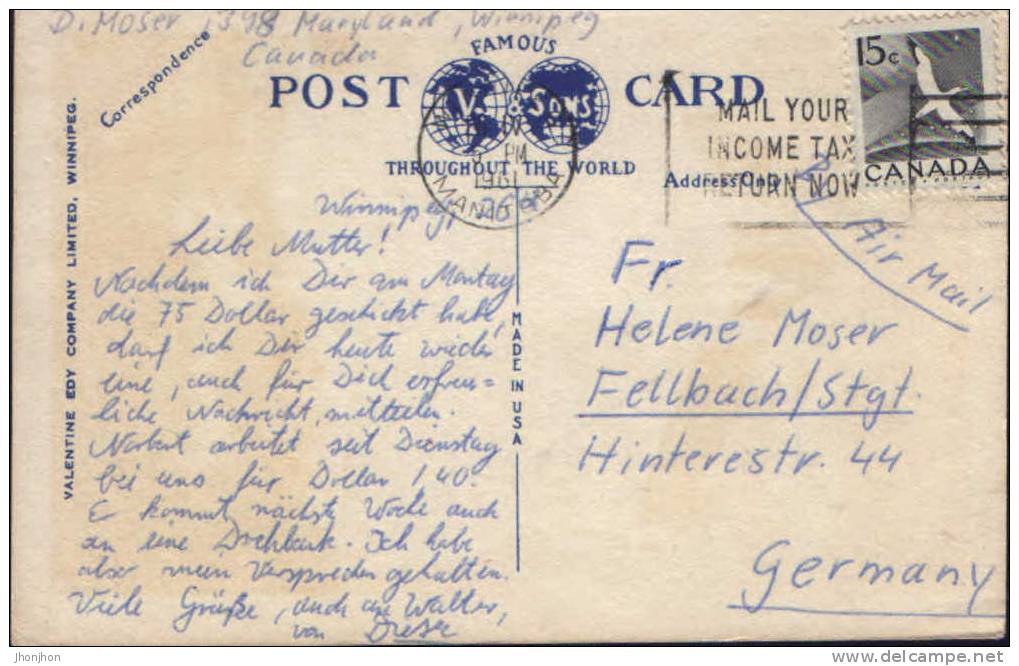 D. Moser, 1398 Maryland, Winnipeg
Canada
Correspondence
FAMOUS
POST CARD
V. & SONS
THROUGHOUT THE WORLD
Address Only
15c
CANADA
MAIL YOUR
INCOME TAX
RETURN NOW
PM
1961
MANITOBA
Air Mail
VALENTINE EDY COMPANY LIMITED, WINNIPEG.
MADE IN USA
Winnipeg,
Liebe Mutter!
Nachdem ich Dir am Montag
die 75 Dollar geschickt habe,
darf ich Dir heute wieder
eine, auch für Dich erfreu=
liche Nachricht, mitteilen.
Norbert arbeitet seit Dienstag
bei uns für Dollar 1,40.
Er kommt nächste Woche auch
an eine Drehbank. Ich habe
also mein Versprechen gehalten.
Viele Grüße, auch an Walter,
von
Fr.
Helene Moser
Fellbach/Stgt.
Hinterestr. 44
Germany
jhonjhon
delcampe.net